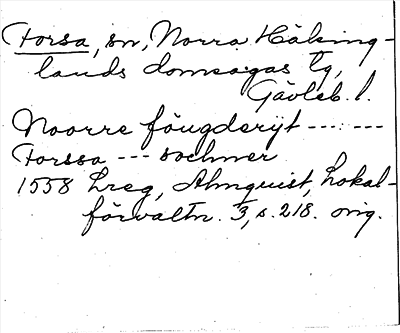 Forsa, sn, Norra Hälsing-
lands domsagas tg,
Gävleb. l.
Noorre föugderijt --- ---
Forssa --- sochner
1558 Lreg, Almquist, Lokal-
förvaltn. 3, s. 218. orig.